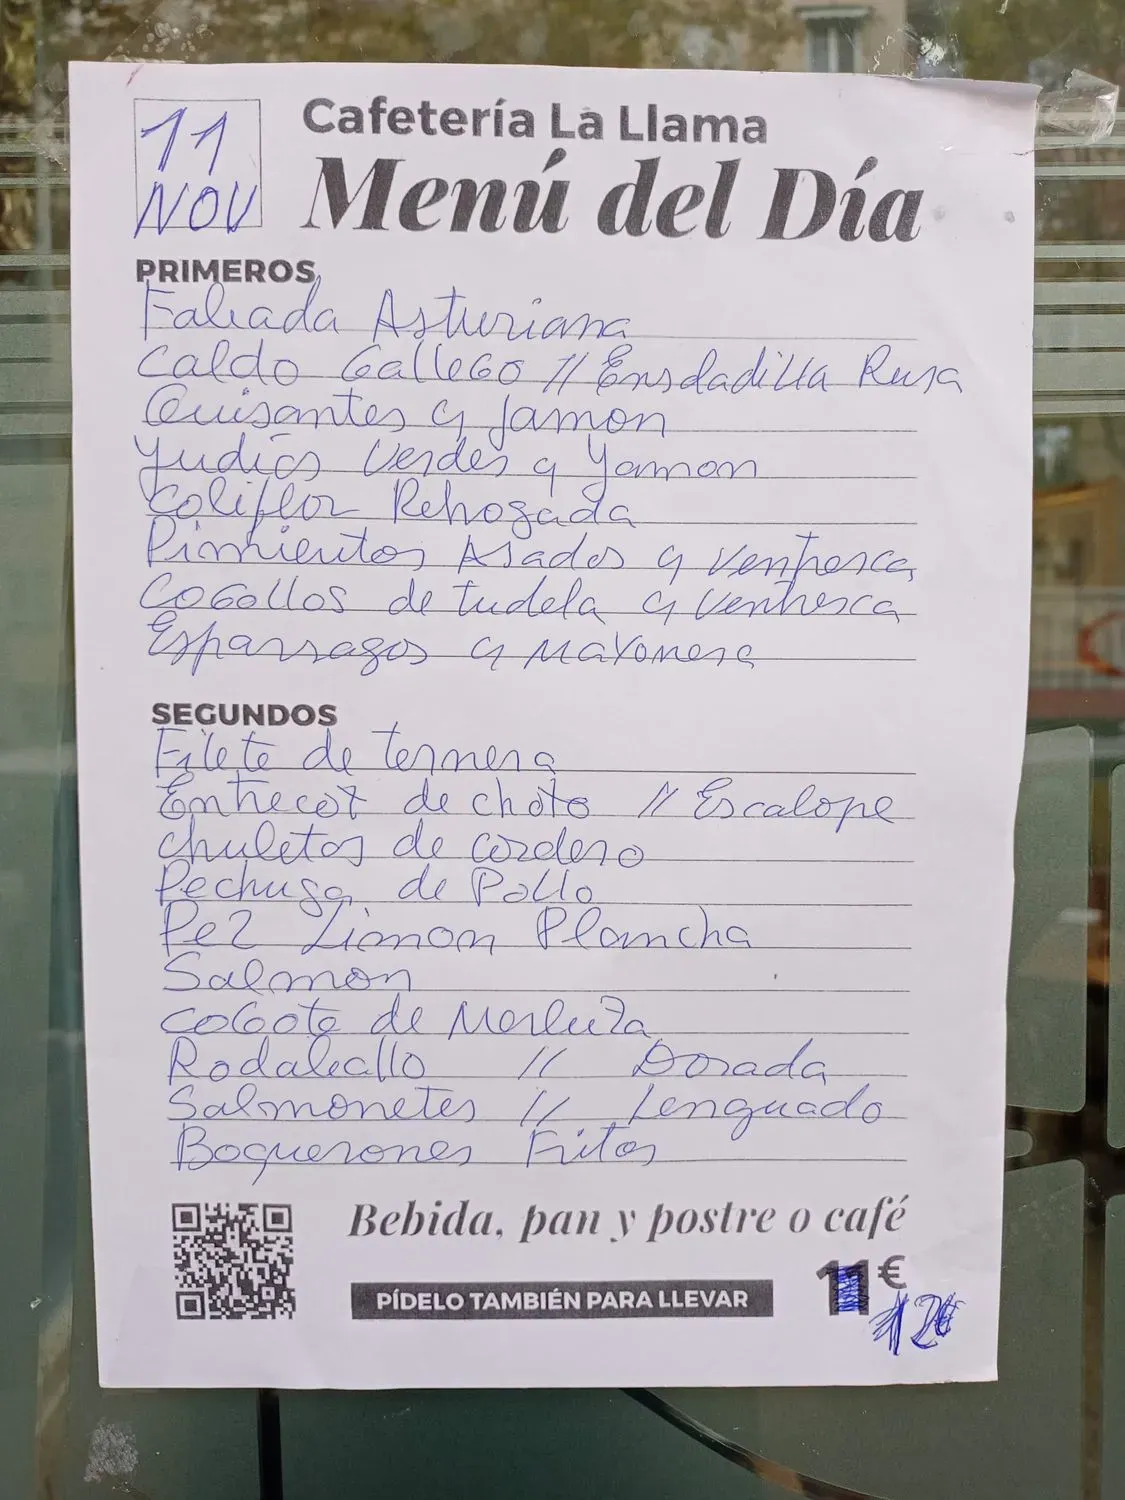 11
NOV
Cafetería La Llama
Menú del Día
PRIMEROS
Fabada Asturiana
Caldo Gallego // Ensdadilla Rusa
Guisantes y Jamon
Yudias Verdes y Yamon
Coliflor Rehogada
Pimientos Asados y Ventresca
Cogollos de tudela y Ventresca
Esparragos y Mayonesa
SEGUNDOS
Filete de ternera
Entrecot de choto // Escalope
Chuletas de cordero
Pechuga de Pollo
Pez Limon Plancha
Salmon
Cogote de Merluza
Rodaballo // Dorada
Salmonetes // Lenguado
Boquerones Fritos
Bebida, pan y postre o café
PÍDELO TAMBIÉN PARA LLEVAR
11€
12€